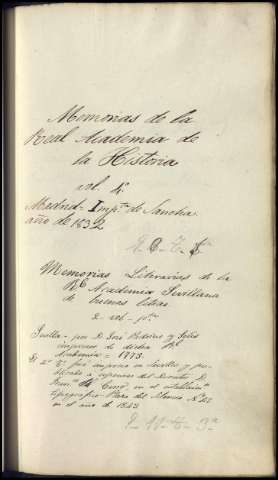 Memorias de la
Real Academia de
la Historia
vol. 
Madrid - Imp.ta de Sancha
año de 1832
Memorias Literarias de la
Rl. Academia Sevillana
de buenas letras
2 - vol -
Sevilla - por D. José Padrino y Solís
impresor de dicha Rl.
Academia = 1773.
El 2º tº fué impreso en Sevilla y pu-
blicado a expensas del Director D.
en el establecimto
tipografico - Plaza del Silencio Nº 22
en el año de 1843